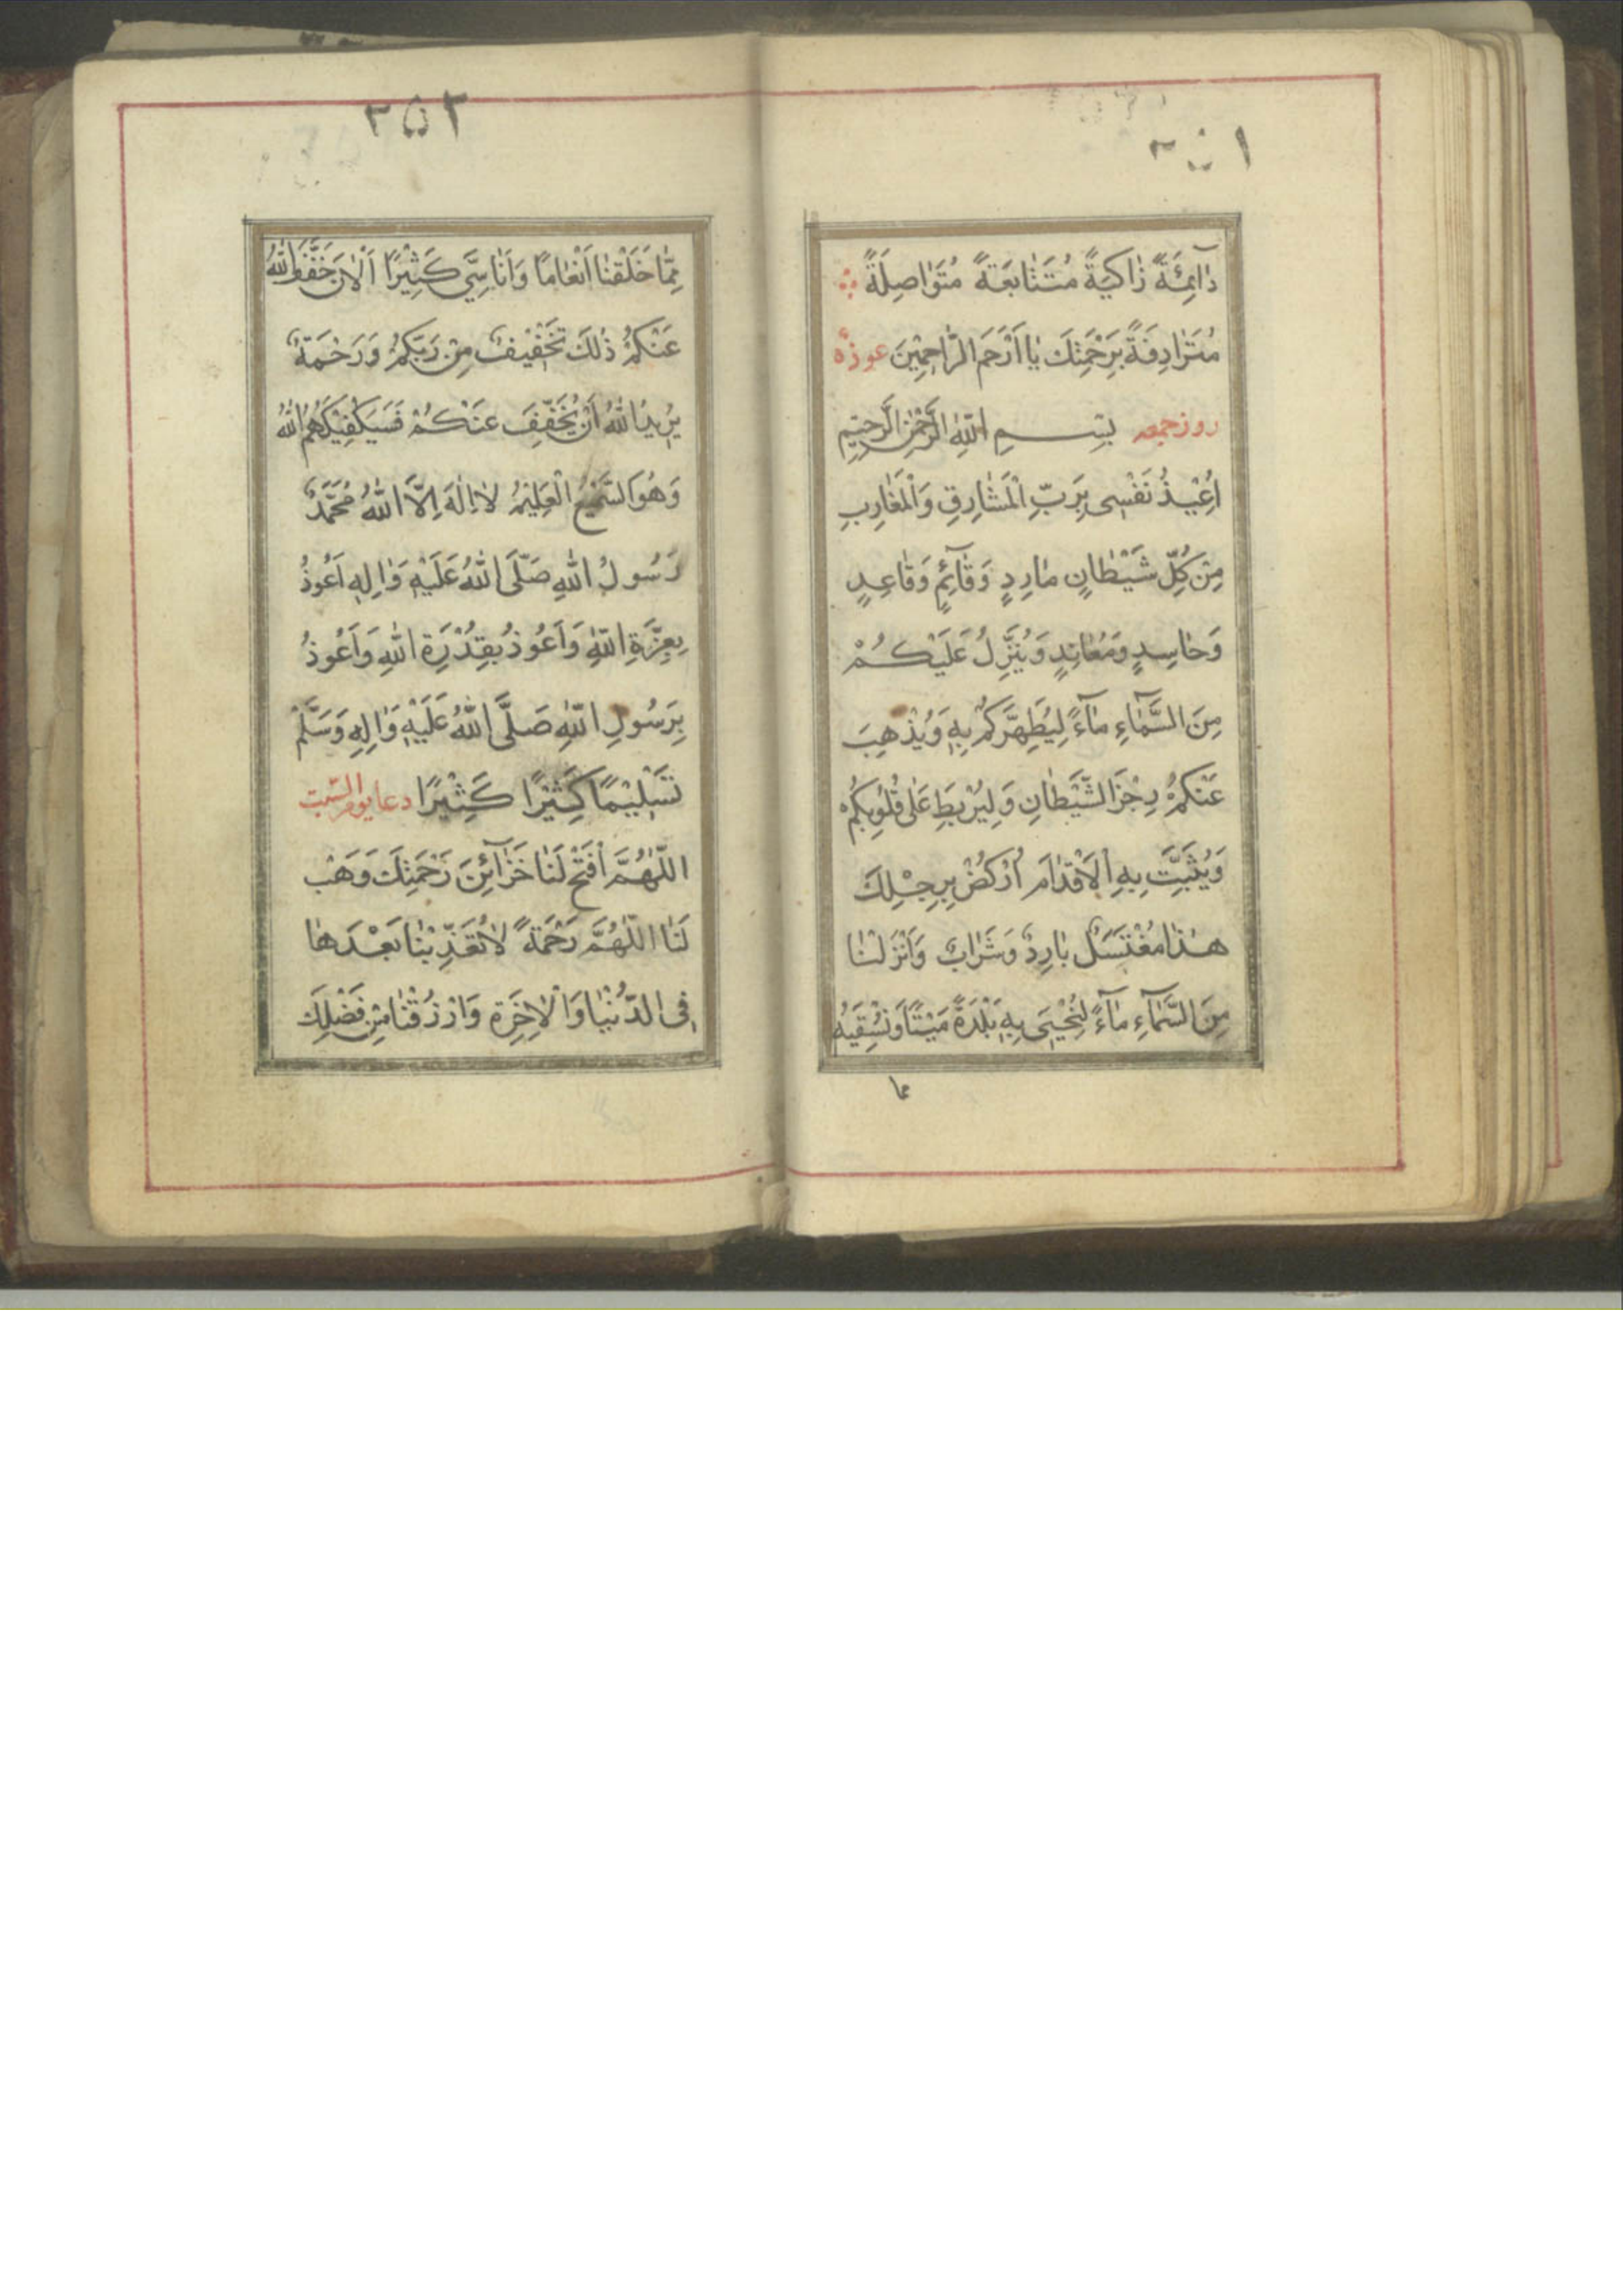 ٢٥١
دٰآئِمَةً زٰاكِيَةً مُتَتٰابَعَةً مُتَوٰاصِلَةً
مُتَرٰادِفَةً بِرَحْمَتِكَ يٰا اَرْحَمَ الرّٰاحِمِيْنَ عوذهٔ
روز جمعه بِسْــمِ اللّٰهِ الرَّحْمٰنِ الرَّحِيْمِ
اُعِيْذُ نَفْسِى بِرَبِّ الْمَشٰارِقِ وَالْمَغٰارِبِ
مِنْ كُلِّ شَيْطٰانٍ مٰارِدٍ وَقٰآئِمٍ وَقٰاعِدٍ
وَحٰاسِدٍ وَمُعٰانِدٍ وَيُنَزِّلُ عَلَيْكُمْ
مِنَ السَّمٰاءِ مٰآءً لِيُطَهِّرَكُمْ بِهٖ وَيُذْهِبَ
عَنْكُمْ رِجْزَ الشَّيْطٰانِ وَلِيَرْبِطَ عَلٰى قُلُوبِكُمْ
وَيُثَبِّتَ بِهِ الْاَقْدٰامَ اُرْكُضْ بِرِجْلِكَ
هٰذٰا مُغْتَسَلٌ بٰارِدٌ وَشَرٰابٌ وَاَنْزَلْنٰا
مِنَ السَّمٰآءِ مٰآءً لِنُحْيِىَ بِهٖ بَلْدَةً مَيْتًا وَنُسْقِيَهُ
مما
٢٥٢
مِمّٰا خَلَقْنٰا اَنْعٰامًا وَاَنٰاسِيَّ كَثِيْرًا اَلْاٰنَ خَفَّفَ اللّٰهُ
عَنْكُمْ ذٰلِكَ تَخْفِيْفٌ مِنْ رَبِّكُمْ وَرَحْمَةٌ
يُرِيْدُ اللّٰهُ اَنْ يُخَفِّفَ عَنْكُمْ فَسَيَكْفِيْكَهُمُ اللّٰهُ
وَهُوَ السَّمِيْعُ الْعَلِيْمُ لٰا اِلٰهَ اِلَّا اللّٰهُ مُحَمَّدٌ
رَسُولُ اللّٰهِ صَلَّى اللّٰهُ عَلَيْهِ وَاٰلِهٖ اَعُوذُ
بِعِزَّةِ اللّٰهِ وَاَعُوذُ بِقُدْرَةِ اللّٰهِ وَاَعُوذُ
بِرَسُولِ اللّٰهِ صَلَّى اللّٰهُ عَلَيْهِ وَاٰلِهٖ وَسَلَّمْ
تَسْلِيْمًا كَثِيْرًا كَثِيْرًا دعا يوم السّبت
اَللّٰهُمَّ افْتَحْ لَنٰا خَزٰآئِنَ رَحْمَتِكَ وَهَبْ
لَنٰا اللّٰهُمَّ رَحْمَةً لٰا تُعَذِّبْنٰا بَعْدَهٰا
فِى الدُّنْيٰا وَالْاٰخِرَةِ وَارْزُقْنٰا مِنْ فَضْلِكَ